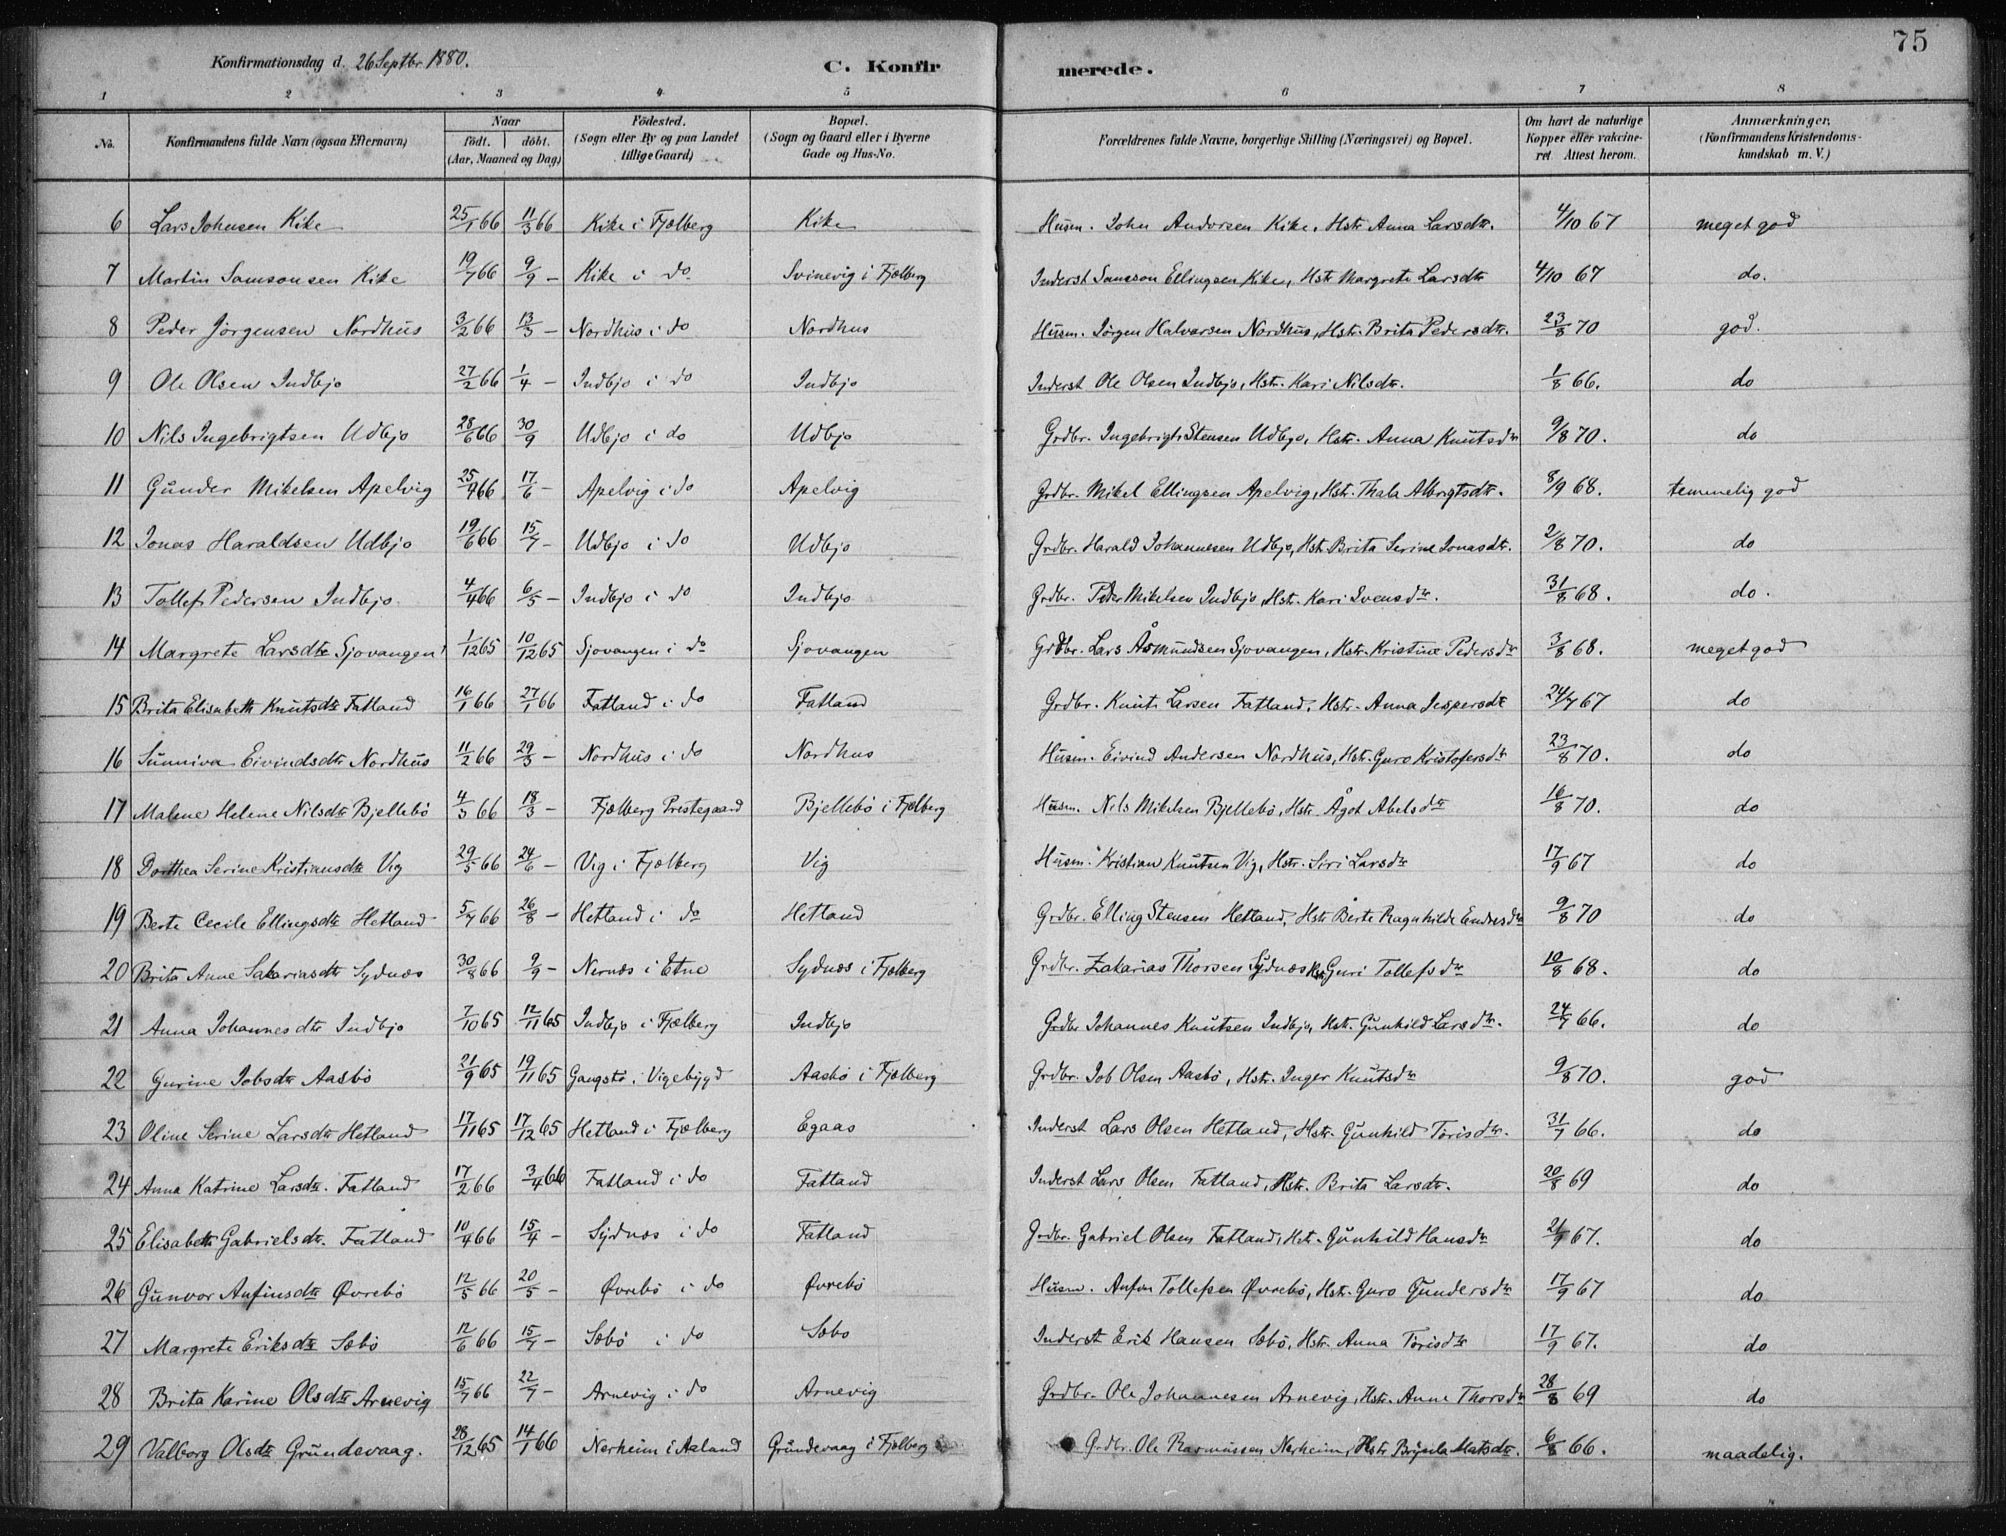 75
Konfirmationsdag d. 26 Septbr 1880.
C. Konfir merede.
1 2 3 4 5 6 7 8
No. Konfirmandens fulde Navn (ogsaa Efternavn) Naar födt. döbt. (Aar, Maaned og Dag) Födested. (Sogn eller By og paa Landet tillige Gaard) Bopæl. (Sogn og Gaard eller i Byerne Gade og Hus-No. Forældrenes fulde Navne, borgerlige Stilling (Næringsvei) og Bopæl. Om havt de naturlige Kopper eller vakcineret. Attest herom. Anmærkninger, (Konfirmandens Kristendomskundskab m. V.)
6 Lars Johnsen Kike 25/1 66 11/3 66 Kike i Fjælberg Kike Husm. John Andersen Kike, Hstr Anna Larsdtr. 4/10 67 meget god
7 Martin Samsonsen Kike 19/7 66 9/9 - Kike i do Svinevig i Fjælberg Inderst Samson Ellingsen Kike, Hstr Margrete Larsdtr 4/10 67 do.
8 Peder Jörgensen Nordhus 3/2 66 13/3 - Nordhus i do Nordhus Husm. Jörgen Halvorsen Nordhus, Hstr. Brita Pedersdtr. 23/8 70 god.
9 Ole Olsen Indbjo 27/2 66 1/4 - Indbjo i do Indbjo Inderst Ole Olsen Indbjo, Hstr. Kari Nilsdtr. 1/8 66. do
10 Nils Ingebrigtsen Udbjo 28/6 66 30/9 Udbjo i do Udbjo Grdbr. Ingebrigt Stensen Udbjo, Hstr. Anna Knutsdtr 9/8 70. do
11 Gunder Mikelsen Apelvig 25/4 66 17/6 - Apelvig i do Apelvig Grdbr. Mikel Ellingsen Apelvig, Hstr. Thala Albrigtsdtr. 8/9 68. temmelig god
12 Jonas Haraldsen Udbjo 19/6 66 15/7 - Udbjo i do Udbjo Grdbr. Harald Johannesen Udbjo, Hstr. Brita Serine Jonasdtr. 2/8 70. do
13 Tollef Pedersen Indbjo. 4/4 66 6/5 - Indbjo i do Indbjo Grdbr. Peder Mikelsen Indbjo, Hstr. Kari Svensdtr. 31/8 68. do.
14 Margrete Larsdtr Sjovangen 1/12 65 10/12 65 Sjovangen i do Sjovangen Grdbr. Lars Åsmundsen Sjovangen, Hstr. Kristine Pedersdtr 3/8 68. meget god
15 Brita Elisabeth Knutsdtr Fatland 16/1 66 27/1 66 Fatland i do Fatland Grdbr. Knut Larsen Fatland, Hstr. Anna Jespersdtr 24/7 67 do
16 Sunniva Eivindsdtr Nordhus 11/2 66 29/3 - Nordhus i do Nordhus Husm. Eivind Andersen Nordhus, Hstr. Guro Kristofersdtr 23/8 70. do
17 Malene Helene Nilsdtr Bjellebö 4/3 66 18/3 - Fjælberg Prestegaard Bjellebö i Fjælberg Husm. Nils Mikelsen Bjellebö, Hstr. Ågot Abelsdtr 16/8 70. do
18 Dorthea Serine Kristiansdtr Vig 29/5 66 24/6 - Vig i Fjælberg Vig Husm. Kristian Knutsen Vig, Hstr. Siri Larsdtr 17/9 67 do
19 Berte Cecile Ellingsdtr Hetland 5/7 66 26/8 - Hetland i do Hetland Grdbr. Elling Stensen Hetland, Hstr Berte Ragnhilde Endresdtr 9/8 70 do
20 Brita Anne Sakariasdtr Sydnæs 30/8 66 9/9 - Nernæs i Etne Sydnæs i Fjælberg Grdbr. Zakarias Thorsen Sydnæs Hstr Guri Tollefsdtr 10/8 68. do
21 Anna Johannesdtr Indbjo 7/10 65 12/11 65 Indbjo i Fjælberg Indbjo Grdbr Johannes Knutsen Indbjo, Hstr. Gunhild Larsdtr. 24/7 66. do
22 Gurine Jobsdtr Aasbö 21/9 65 19/11 65 Gangstö i Vigebygd Aasbö i Fjælberg Grdbr. Job Olsen Aasbö, Hstr. Inger Knutsdtr 9/8 70. god
23 Oline Serine Larsdtr Hetland 17/11 65 17/12 65 Hetland i Fjælberg Egaas Inderst Lars Olsen Hetland, Hstr. Gunhild Törisdtr. 31/7 66. do
24 Anna Katrine Larsdtr. Fatland 17/2 66 3/4 66 Fatland i do Fatland Inderst Lars Olsen Fatland, Hstr. Brita Larsdtr. 20/8 69 do
25 Elisabeth Gabrielsdtr. Fatland 10/4 66 15/4 - Sydnæs i do Fatland Grdbr. Gabriel Olsen Fatland, Hstr. Gunhild Hansdtr 21/9 67. do
26 Gunvor Anfinsdtr Øvrebö 12/5 66 20/5 - Øvrebö i do Øvrebö Husm. Anfin Tollefsen Øvrebö, Hstr. Guro Gundersdtr 17/9 67 do
27 Margrete Eriksdtr Sæbö 12/6 66 15/7 - Sæbö i do Sæbo Inderst Erik Hansen Sæbö, Hstr. Anna Törisdtr 17/9 67. do
28 Brita Karine Olsdtr Arnevig 15/7 66 22/7 - Arnevig i do Arnevig Grdbr. Ole Johannesen Arnevig, Hstr. Anne Thorsdtr 28/8 69 do
29 Valborg Olsdtr Grundevaag. 28/12 65 14/1 66 Nerheim i Aaland Grundevaag i Fjælberg Grdbr. Ole Rasmussen Nerheim, Hstr Brynla Matsdtr. 6/8 66. maadelig.